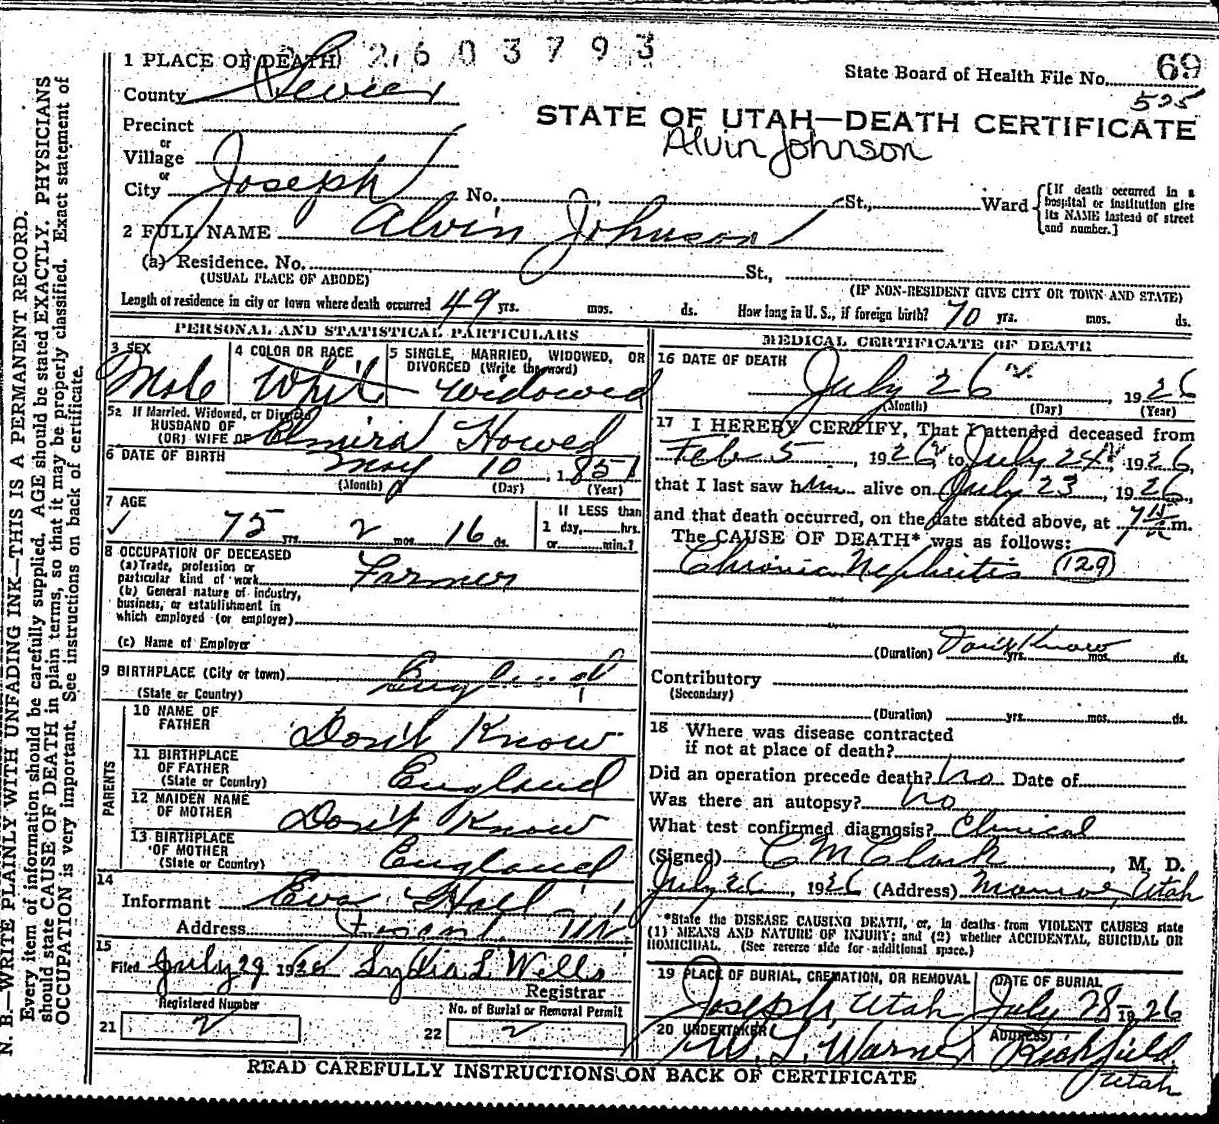 2603793
1 PLACE OF DEATH
County Sevier
State Board of Health File No. 69
525
STATE OF UTAH—DEATH CERTIFICATE
Alvin Johnson
Precinct
or
Village
or
City Joseph No. St., Ward
[If death occurred in a hospital or institution give its NAME instead of street and number.]
2 FULL NAME Alvin Johnson
(a) Residence. No. St.,
(USUAL PLACE OF ABODE) (IF NON-RESIDENT GIVE CITY OR TOWN AND STATE)
Length of residence in city or town where death occurred 49 yrs. mos. ds. How long in U. S., if foreign birth? 70 yrs. mos. ds.
PERSONAL AND STATISTICAL PARTICULARS
3 SEX
Male
4 COLOR OR RACE
White
5 SINGLE, MARRIED, WIDOWED, OR
DIVORCED (Write the word)
Widowed
5a If Married, Widowed, or Divorced
HUSBAND OF
(OR) WIFE OF Elmira Howes
6 DATE OF BIRTH May 10, 1851
(Month) (Day) (Year)
7 AGE
75 yrs. 2 mos. 16 ds.
If LESS than
1 day, hrs.
or min.?
8 OCCUPATION OF DECEASED
(a) Trade, profession or
particular kind of work Farmer
(b) General nature of industry,
business, or establishment in
which employed (or employer)
(c) Name of Employer
9 BIRTHPLACE (City or town) England
(State or Country)
PARENTS
10 NAME OF
FATHER Don't Know
11 BIRTHPLACE
OF FATHER England
(State or Country)
12 MAIDEN NAME
OF MOTHER Don't Know
13 BIRTHPLACE
OF MOTHER England
(State or Country)
14
Informant Eva Hall
Address
15
Filed July 29 1926 Lydia L Wells
Registrar
Registered Number
21 2
No. of Burial or Removal Permit
22 2
MEDICAL CERTIFICATE OF DEATH
16 DATE OF DEATH
July 26, 1926
(Month) (Day) (Year)
17 I HEREBY CERTIFY, That I attended deceased from
Feb 5, 1926, to July 24, 1926,
that I last saw him alive on July 23, 1926,
and that death occurred, on the date stated above, at m.
The CAUSE OF DEATH* was as follows:
Chronic Nephritis (129)
(Duration) Don't Know yrs. mos. ds.
Contributory
(Secondary)
(Duration) yrs. mos. ds.
18 Where was disease contracted
if not at place of death?
Did an operation precede death? No Date of
Was there an autopsy? No
What test confirmed diagnosis? Clinical
(Signed) C M Clark, M. D.
July 26, 1926 (Address) Monroe, Utah
*State the DISEASE CAUSING DEATH, or, in deaths from VIOLENT CAUSES state
(1) MEANS AND NATURE OF INJURY; and (2) whether ACCIDENTAL, SUICIDAL OR
HOMICIDAL. (See reverse side for additional space.)
19 PLACE OF BURIAL, CREMATION, OR REMOVAL
Joseph, Utah
DATE OF BURIAL
July 28 1926
20 UNDERTAKER
W. L. Warner
ADDRESS
Richfield
Utah
READ CAREFULLY INSTRUCTIONS ON BACK OF CERTIFICATE
N. B.—WRITE PLAINLY WITH UNFADING INK—THIS IS A PERMANENT RECORD.
Every item of information should be carefully supplied. AGE should be stated EXACTLY. PHYSICIANS
should state CAUSE OF DEATH in plain terms, so that it may be properly classified. Exact statement of
OCCUPATION is very important. See instructions on back of certificate.